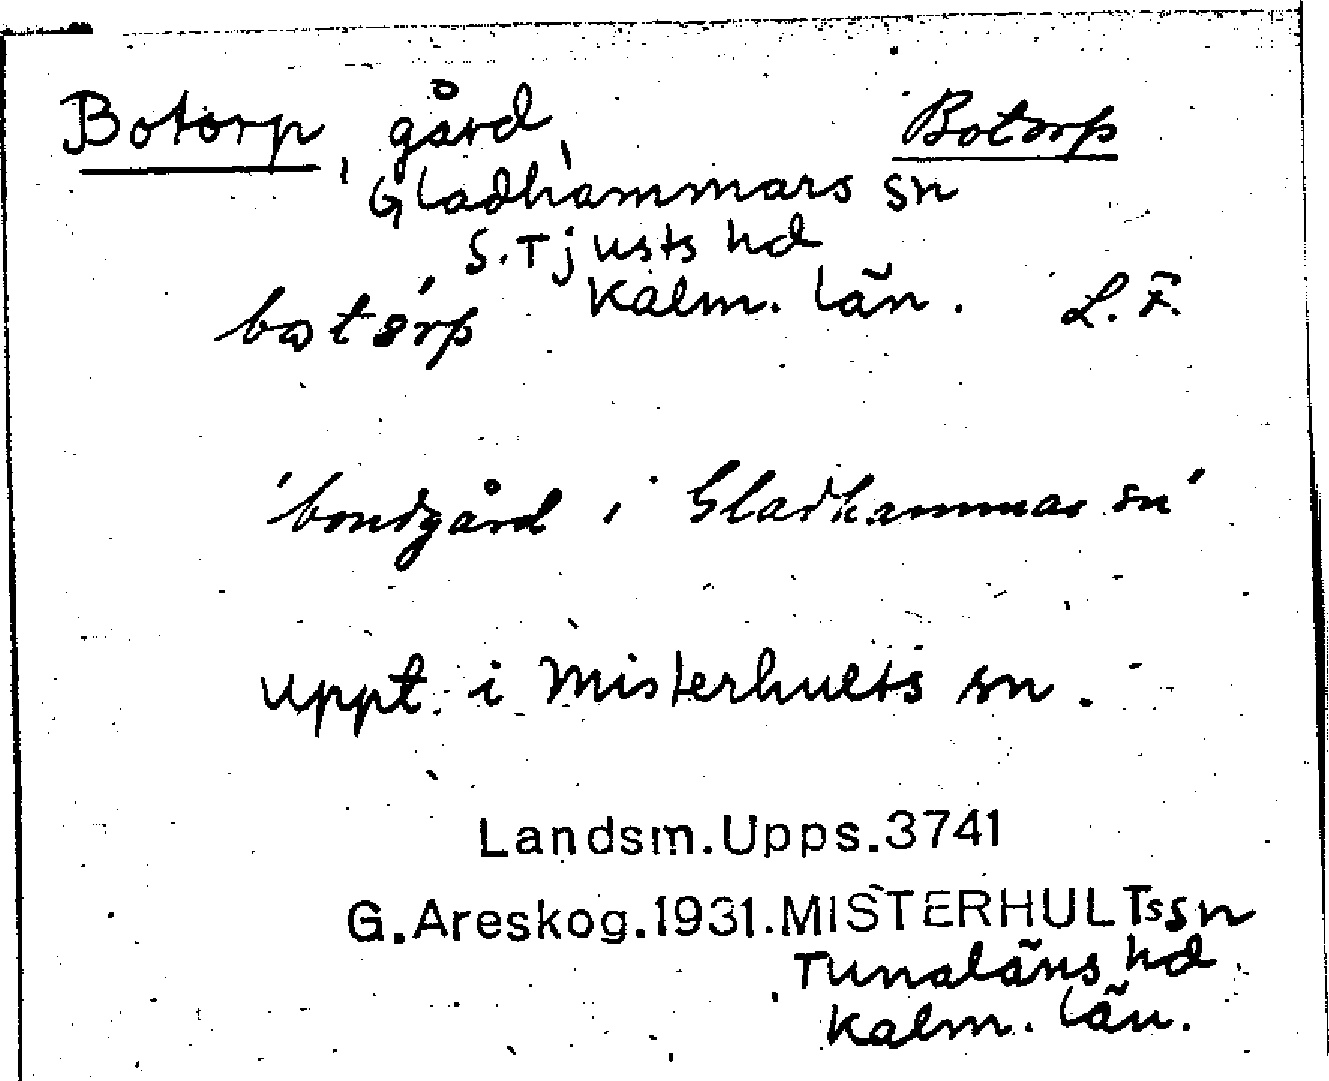 Botorp, gård, Botorp
Gladhammars sn
S. Tjusts hd
Kalm. län. L. F.
'bondgård i Gladhammar sn'
uppt. i Misterhults sn.
Landsm.Upps.3741
G.Areskog.1931.MISTERHULTs sn
Tunaläns hd
Kalm. län.